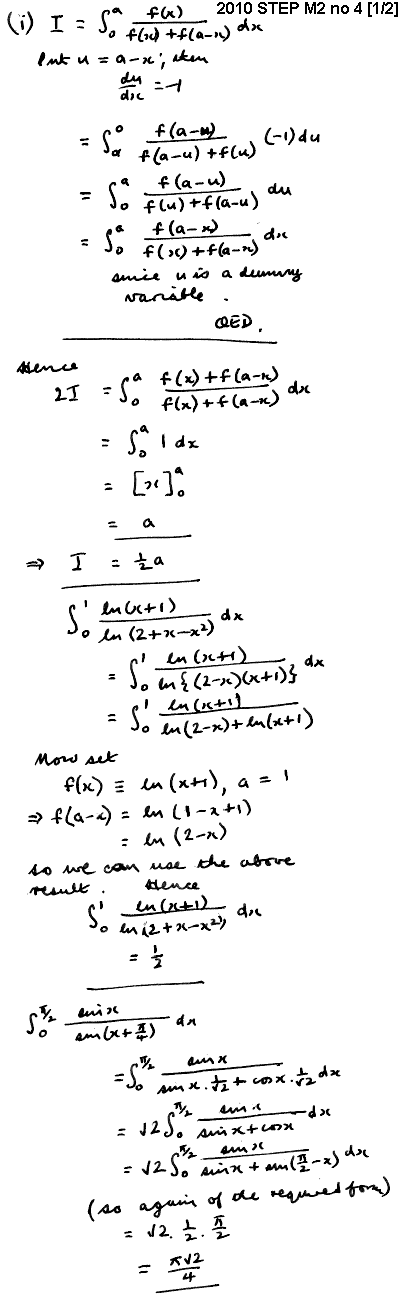 2010 STEP M2 no 4 [1/2]
(i) I = ∫₀ᵃ f(x)/(f(x)+f(a-x)) dx
Put u = a-x; then
du/dx = -1
= ∫ₐ⁰ f(a-u)/(f(a-u)+f(u)) (-1)du
= ∫₀ᵃ f(a-u)/(f(u)+f(a-u)) du
= ∫₀ᵃ f(a-x)/(f(x)+f(a-x)) dx
since u is a dummy
variable.
QED.
Hence
2I = ∫₀ᵃ (f(x)+f(a-x))/(f(x)+f(a-x)) dx
= ∫₀ᵃ 1 dx
= [x]₀ᵃ
= a
⇒ I = ½a
∫₀¹ ln(x+1)/ln(2+x-x²) dx
= ∫₀¹ ln(x+1)/ln{(2-x)(x+1)} dx
= ∫₀¹ ln(x+1)/(ln(2-x)+ln(x+1))
Now set
f(x) ≡ ln(x+1), a = 1
⇒ f(a-x) = ln(1-x+1)
= ln(2-x)
so we can use the above
result. Hence
∫₀¹ ln(x+1)/ln(2+x-x²) dx
= ½
∫₀^(π/2) sinx/sin(x+π/4) dx
= ∫₀^(π/2) sinx/(sinx.1/√2 + cosx.1/√2) dx
= √2∫₀^(π/2) sinx/(sinx+cosx) dx
= √2∫₀^(π/2) sinx/(sinx+sin(π/2-x)) dx
(so again of the required form)
= √2.½.π/2
= π√2/4